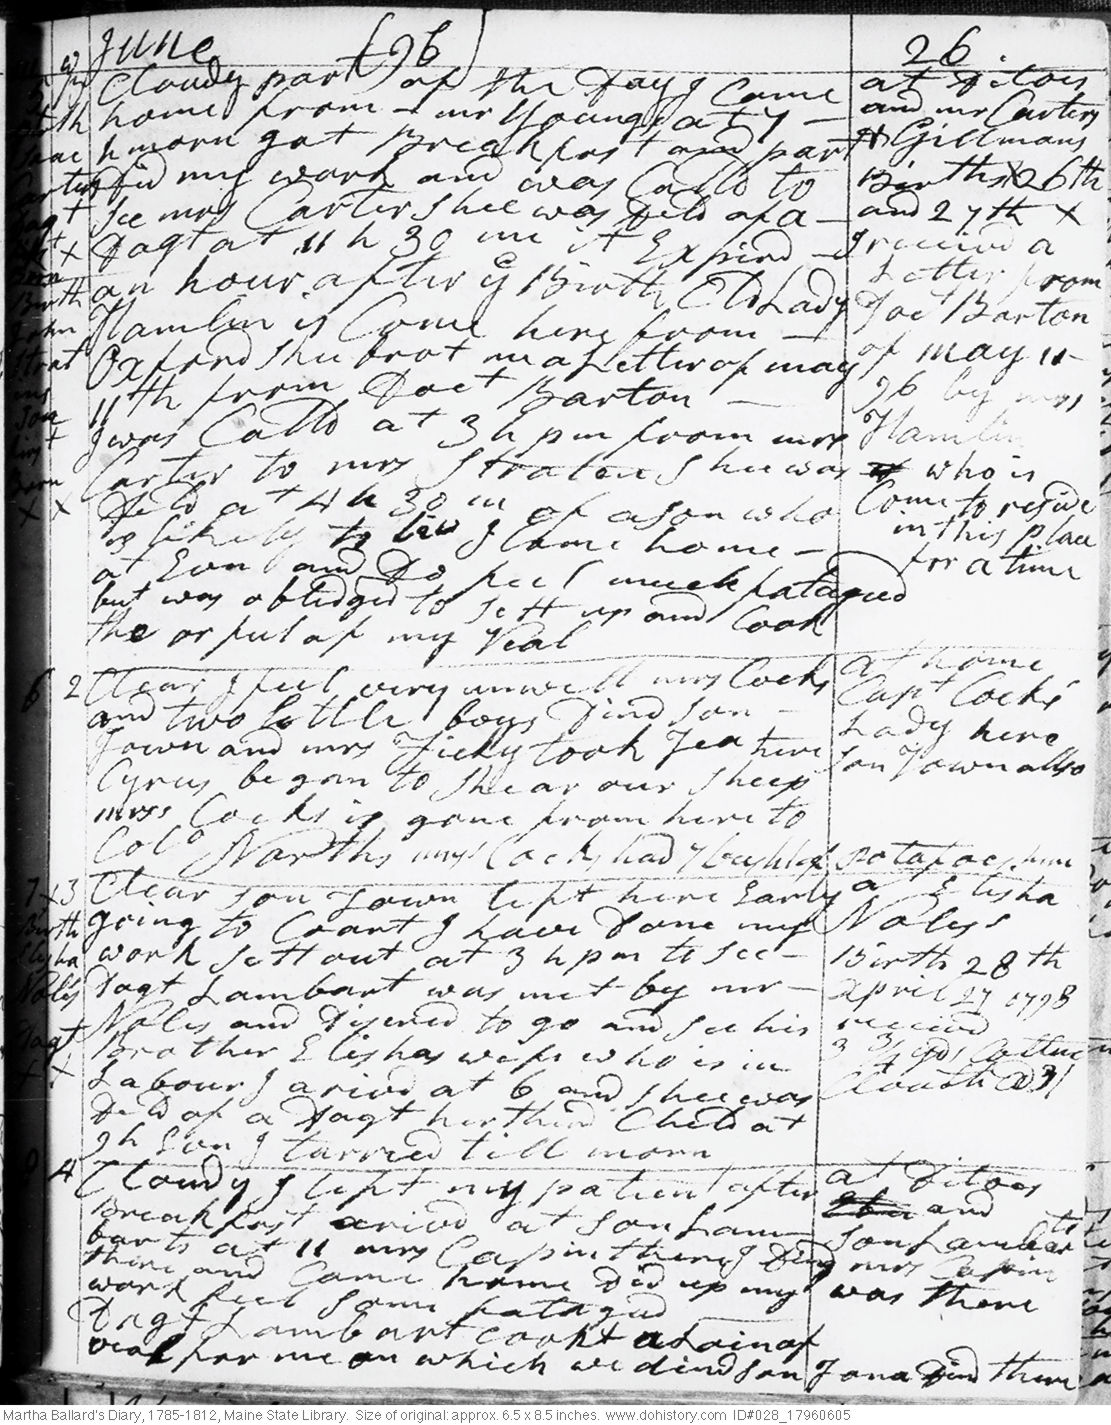 June 96 26
Cloudy part of the Day I Came
home from mr Youngs at 7
h morn got Breakfast and part
Did my work and was Calld to
see mrs Carter shee was Deld of a
Dagt at 11 h 30 m it Expird
an hour after ye Birth Old Lady
Hamlin is Come here from
Oxford shee brot me a Letter of may
11th from Doct Barton
I was Calld at 3 h pm from mrs
Carter to mrs Straten shee was
Deld at 4 h 30 m of a son who
is likely to liv I Came home
at Evn and Do feel much fatagued
but was obledged to sett up and Cook
the orful of my Veal
at Ditoes
and mr Carters
& Gillmans
Births X 26th
and 27th X
I receivd a
Letter from
Doct Barton
of may 11
96 by mrs
Hamlin
who is
Come to reside
in this place
for a time
6 2 Clear I feel very unwell mrs Cocks
and two little boys Dind son
Town and mrs Ficky took Tea here
Cyrus began to shear our sheep
mrss Cocks is gone from here to
Colo Norths mrs Cocks had 1 bushl of potatoes here
at home
Capt Cocks
Lady here
son Town allso
7 3 Clear son Town left here Early
going to Coart I have Done my
work sett out at 3 h pm to see
Dagt Lambart was met by mr
Noles and Disired to go and see his
Brother Elishas wife who is in
Labour I arivd at 6 and shee was
Deld of a Dagt her third Child at
9 h Evn I tarried till morn
at Elisha
Noless
Birth 28th
April 27 1798
receivd
3 3/4 yds Cottne
Cloath
Birth
Elisha
Noles
Dagt
X X
4 Cloudy I left my patient after
Breakfast arivd at son Lam
barts at 11 mrs Capin there I Dind
there and Came home Did up my
work feel some fatagud
Dagt Lambart Cookt a Loin of
veal for me on which we dind son Jona Dind there
at Ditoes
and
son Lambarts
mrs Capin
was there
Martha Ballard's Diary, 1785-1812, Maine State Library. Size of original: approx. 6.5 x 8.5 inches. www.dohistory.com ID#028_17960605